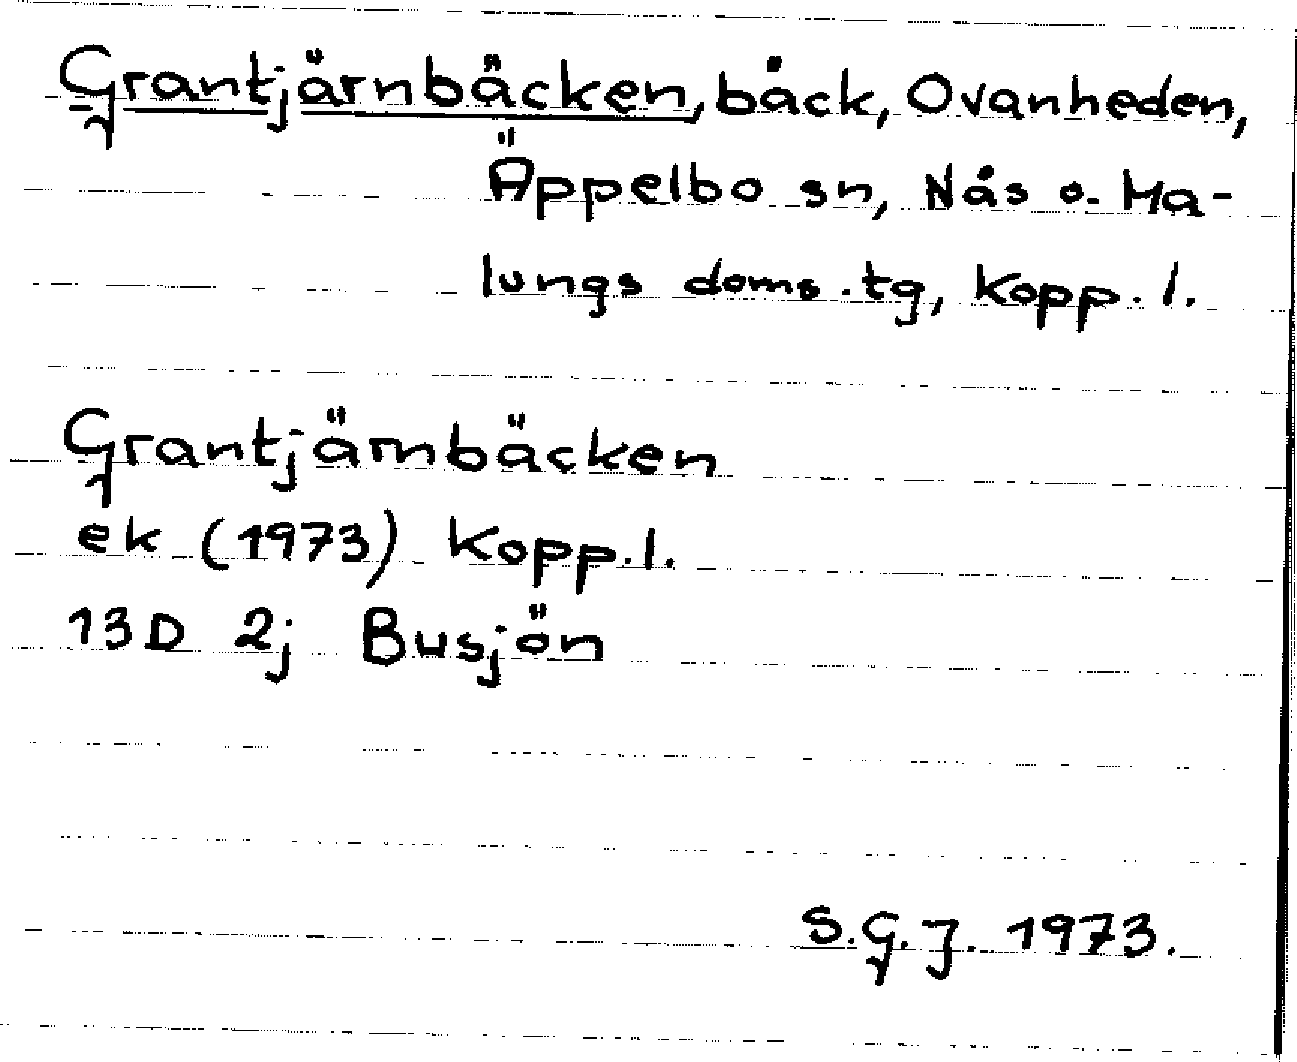 Grantjärnbäcken, bäck, Ovanheden,
Äppelbo sn, Nås o. Ma-
lungs doms.tg, Kopp.l.
Grantjärnbäcken
ek (1973) Kopp.l.
13D 2j Busjön
S.G.J. 1973.